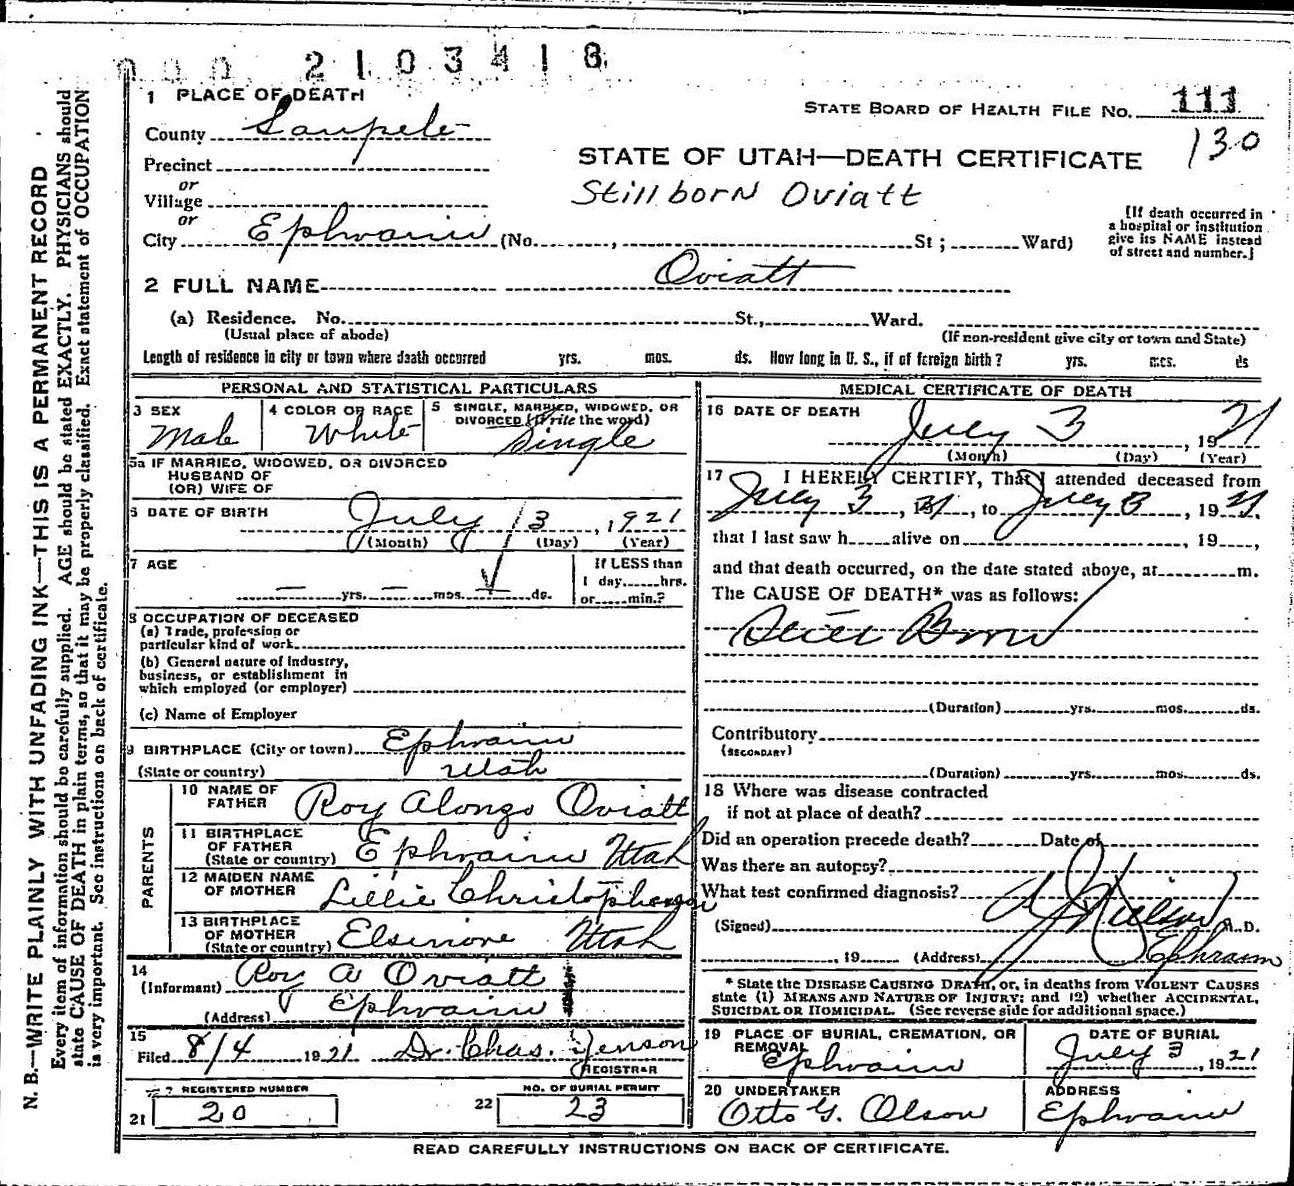 2103418
1 PLACE OF DEATH
STATE BOARD OF HEALTH FILE NO. 111
County Sanpete
130
Precinct
STATE OF UTAH—DEATH CERTIFICATE
or
Village
Stillborn Oviatt
or
City Ephraim (No. , St ; Ward)
[If death occurred in
a hospital or institution
give its NAME instead
of street and number.]
2 FULL NAME Oviatt
(a) Residence. No. St., Ward.
(Usual place of abode)
(If non-resident give city or town and State)
Length of residence in city or town where death occurred yrs. mos. ds. How long in U. S., if of foreign birth? yrs. mos. ds
PERSONAL AND STATISTICAL PARTICULARS
3 SEX
Male
4 COLOR OR RACE
White
5 SINGLE, MARRIED, WIDOWED, OR
DIVORCED (Write the word)
Single
5a IF MARRIED, WIDOWED, OR DIVORCED
HUSBAND OF
(OR) WIFE OF
6 DATE OF BIRTH
July 3, 1921
(Month) (Day) (Year)
7 AGE
— yrs. — mos. — ds.
If LESS than
1 day hrs.
or min.?
8 OCCUPATION OF DECEASED
(a) Trade, profession or
particular kind of work
(b) General nature of industry,
business, or establishment in
which employed (or employer)
(c) Name of Employer
9 BIRTHPLACE (City or town) Ephraim
(State or country) Utah
PARENTS
10 NAME OF
FATHER Roy Alonzo Oviatt
11 BIRTHPLACE
OF FATHER
(State or country) Ephraim Utah
12 MAIDEN NAME
OF MOTHER Lillie Christophenson
13 BIRTHPLACE
OF MOTHER
(State or country) Elsinore Utah
14
(Informant) Roy A Oviatt
(Address) Ephraim
15
Filed 8/4 1921 Dr. Chas. Jenson
REGISTRAR
REGISTERED NUMBER
21 20
NO. OF BURIAL PERMIT
22 23
MEDICAL CERTIFICATE OF DEATH
16 DATE OF DEATH
July 3, 1921
(Month) (Day) (Year)
17 I HEREBY CERTIFY, That I attended deceased from
July 3, 21, to July 3, 1921.
that I last saw h alive on , 19 ,
and that death occurred, on the date stated above, at m.
The CAUSE OF DEATH* was as follows:
Still Born
(Duration) yrs. mos. ds.
Contributory
(SECONDARY)
(Duration) yrs. mos. ds.
18 Where was disease contracted
if not at place of death?
Did an operation precede death? Date of
Was there an autopsy?
What test confirmed diagnosis?
(Signed) Nielson M.D.
, 19 (Address) Ephraim
* State the DISEASE CAUSING DEATH, or, in deaths from VIOLENT CAUSES
state (1) MEANS AND NATURE OF INJURY; and (2) whether ACCIDENTAL,
SUICIDAL OR HOMICIDAL. (See reverse side for additional space.)
19 PLACE OF BURIAL, CREMATION, OR
REMOVAL
Ephraim
DATE OF BURIAL
July 3, 1921
20 UNDERTAKER
Otto G. Olson
ADDRESS
Ephraim
READ CAREFULLY INSTRUCTIONS ON BACK OF CERTIFICATE.
N. B.—WRITE PLAINLY WITH UNFADING INK—THIS IS A PERMANENT RECORD
Every item of information should be carefully supplied. AGE should be stated EXACTLY. PHYSICIANS should
state CAUSE OF DEATH in plain terms, so that it may be properly classified. Exact statement of OCCUPATION
is very important. See instructions on back of certificate.